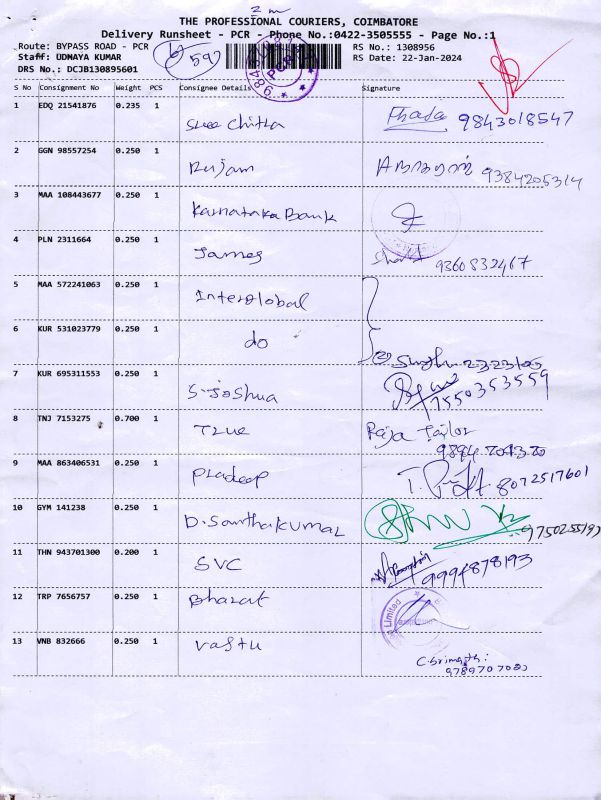 2 m
THE PROFESSIONAL COURIERS, COIMBATORE
Delivery Runsheet - PCR - Phone No.:0422-3505555 - Page No.:1
Route: BYPASS ROAD - PCR
Staff: UDHAYA KUMAR
DRS No.: DCJB130895601
597
PCR
RS No.: 1308956
RS Date: 22-Jan-2024
S No Consignment No Weight PCS Consignee Details Signature
1 EDQ 21541876 0.235 1 Sree Chitra 9843018547
2 GGN 98557254 0.250 1 Rujam 9384205314
3 MAA 108443677 0.250 1 Karnataka Bank
4 PLN 2311664 0.250 1 James 9360832467
5 MAA 572241063 0.250 1 Interglobal
6 KUR 531023779 0.250 1 do
7 KUR 695311553 0.250 1 S. Joshua 7550353559
8 TNJ 7153275 0.700 1 True Raja Tailor
9 MAA 863406531 0.250 1 Pradeep 8072517601
10 GYM 141238 0.250 1 D. Santhakumar 9750255193
11 THN 943701300 0.200 1 SVC 9994878193
12 TRP 7656757 0.250 1 Bharat Limited
13 VNB 832666 0.250 1 Vastu C. Srimathi: